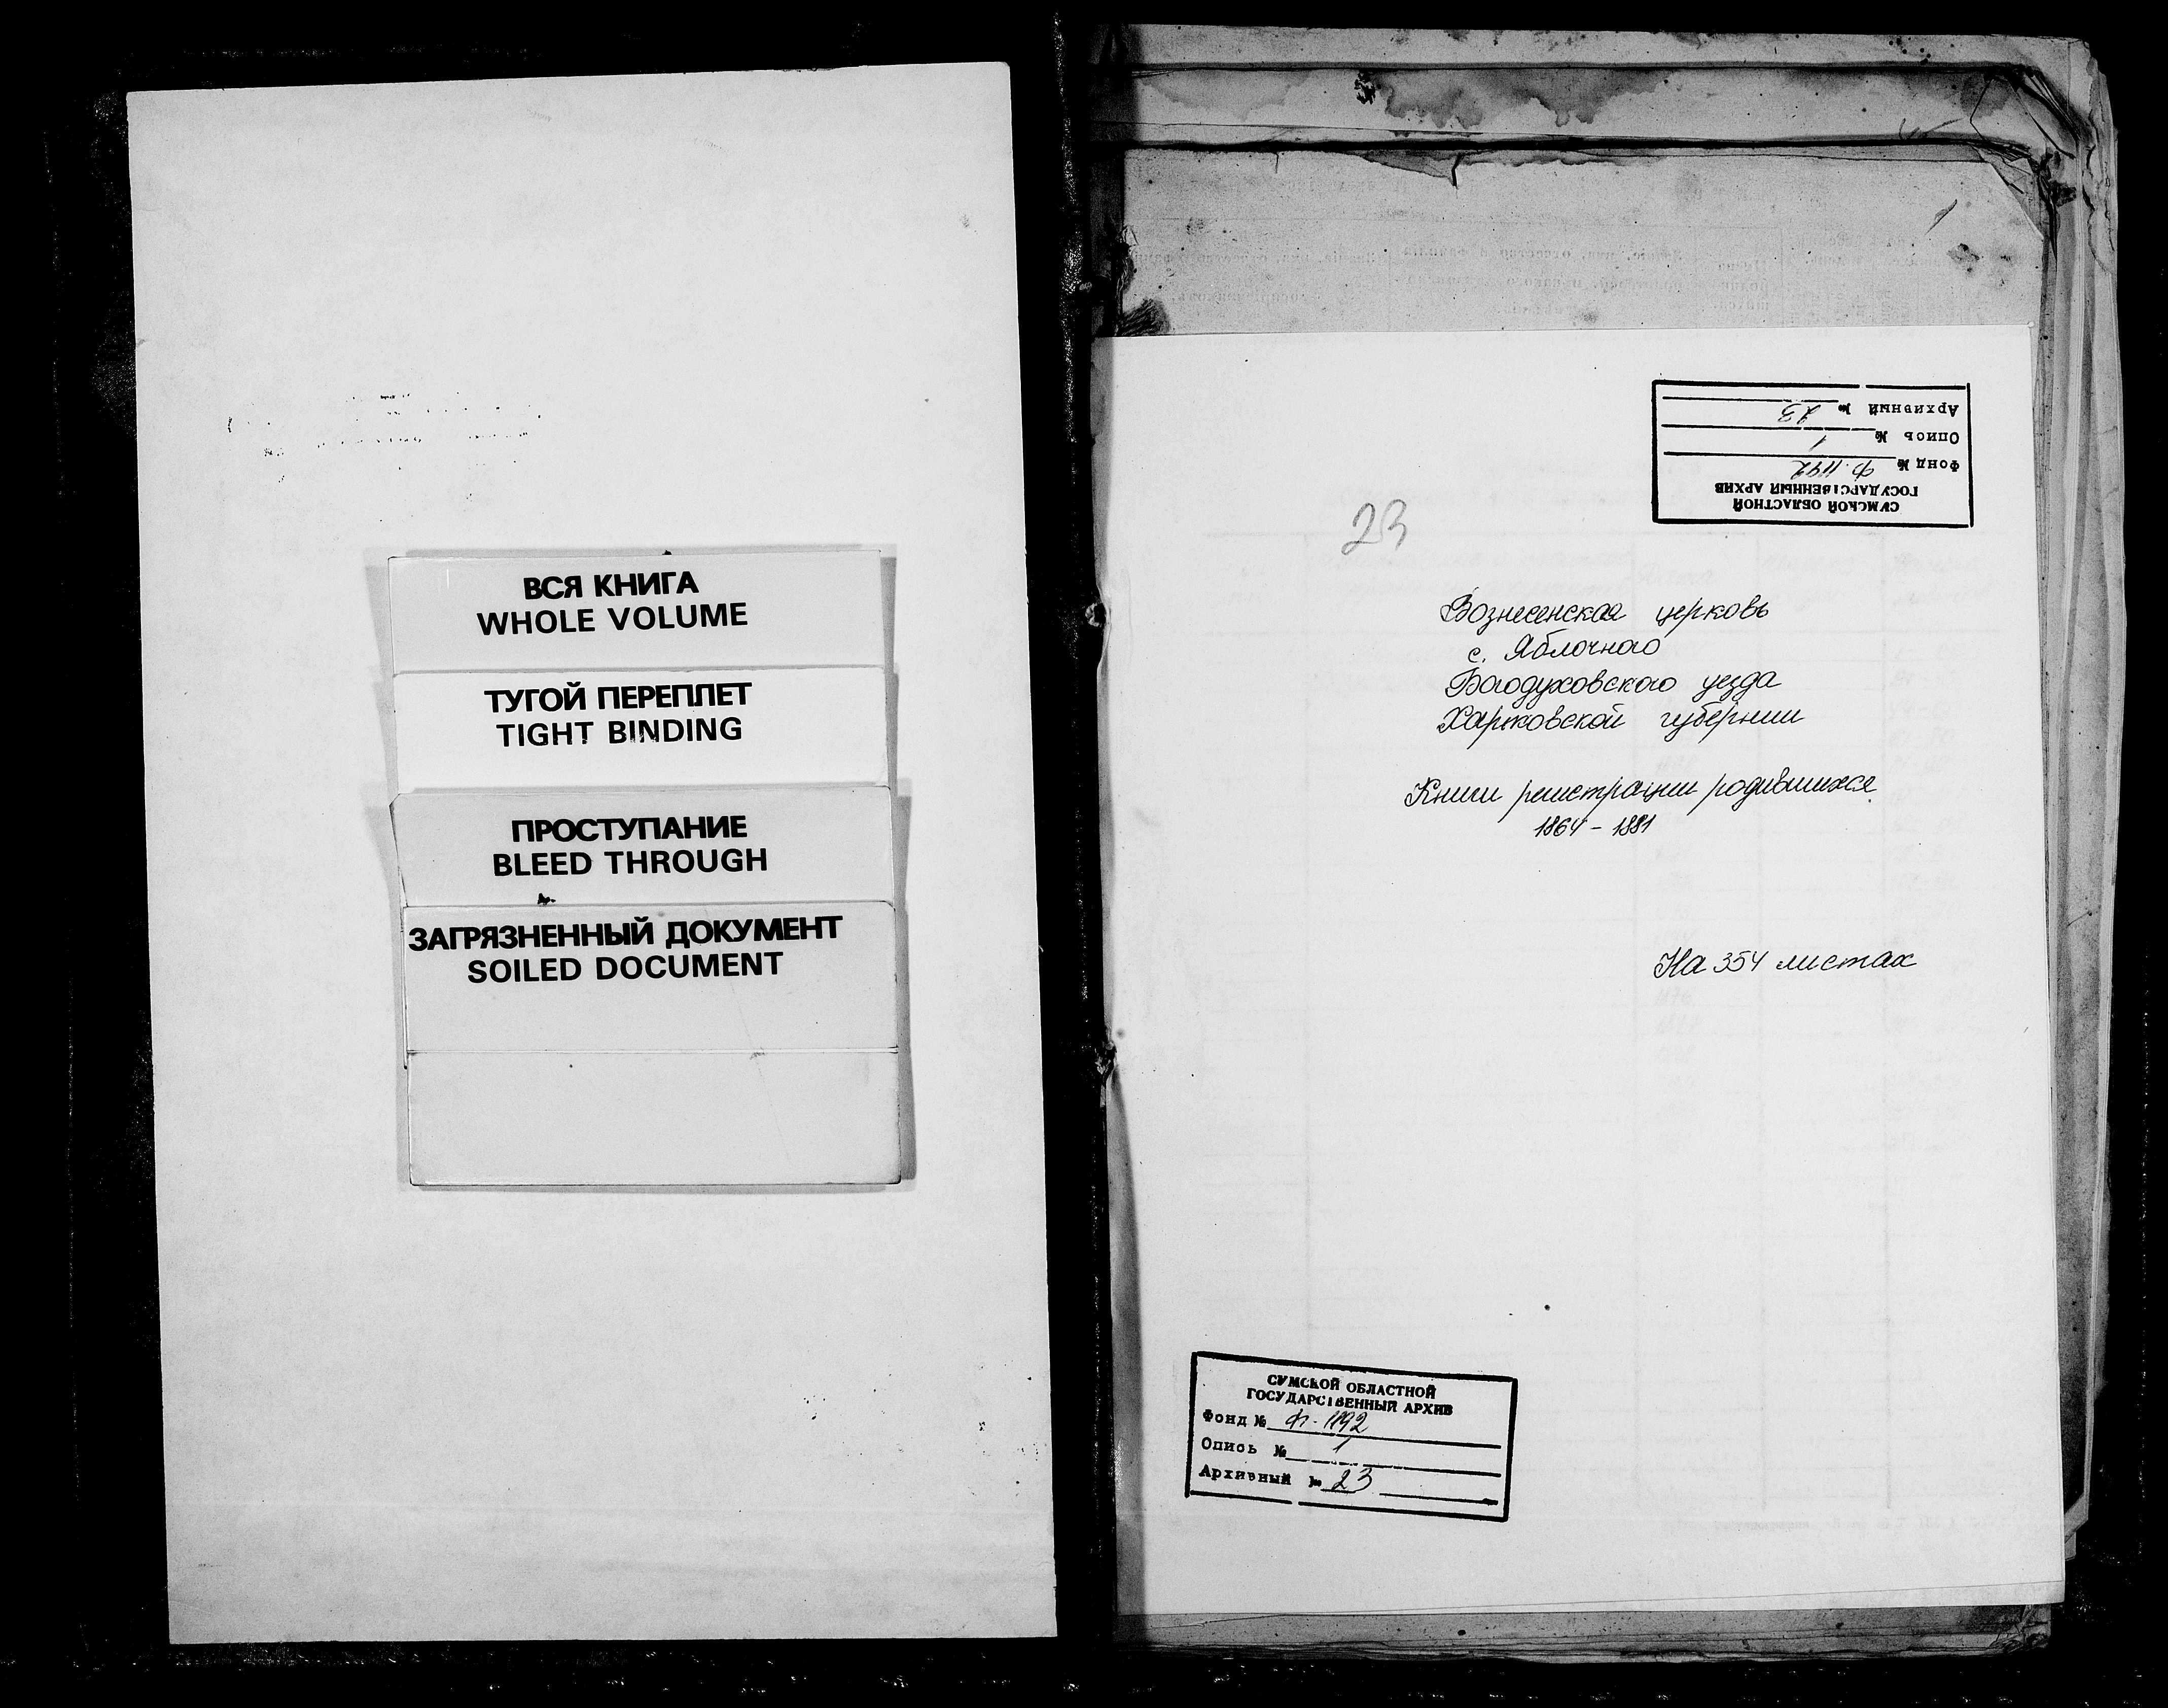 ВСЯ КНИГА
WHOLE VOLUME
ТУГОЙ ПЕРЕПЛЕТ
TIGHT BINDING
ПРОСТУПАНИЕ
BLEED THROUGH
ЗАГРЯЗНЕННЫЙ ДОКУМЕНТ
SOILED DOCUMENT
1
СУМСКОЙ ОБЛАСТНОЙ
ГОСУДАРСТВЕННЫЙ АРХИВ
Фонд № Ф. 1192
Опись № 1
Архивный № 23
23
Вознесенская церковь
с. Яблочного
Богодуховского уезда
Харьковской губернии
Книги регистрации родившихся
1864 - 1881
На 354 листах
СУМСКОЙ ОБЛАСТНОЙ
ГОСУДАРСТВЕННЫЙ АРХИВ
Фонд № Ф. - 1192
Опись № 1
Архивный № 23